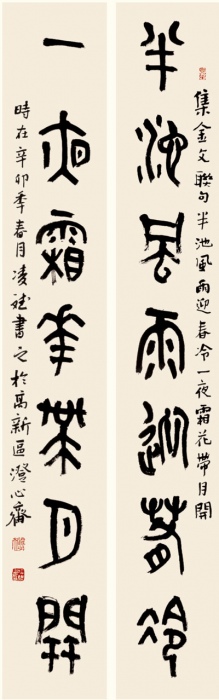 半池風雨迎春冷
集金文聯句半池風雨迎春冷一夜霜花帶月開
一夜霜花帶月開
時在辛卯季春月凌斌書之於高新區澄心齋